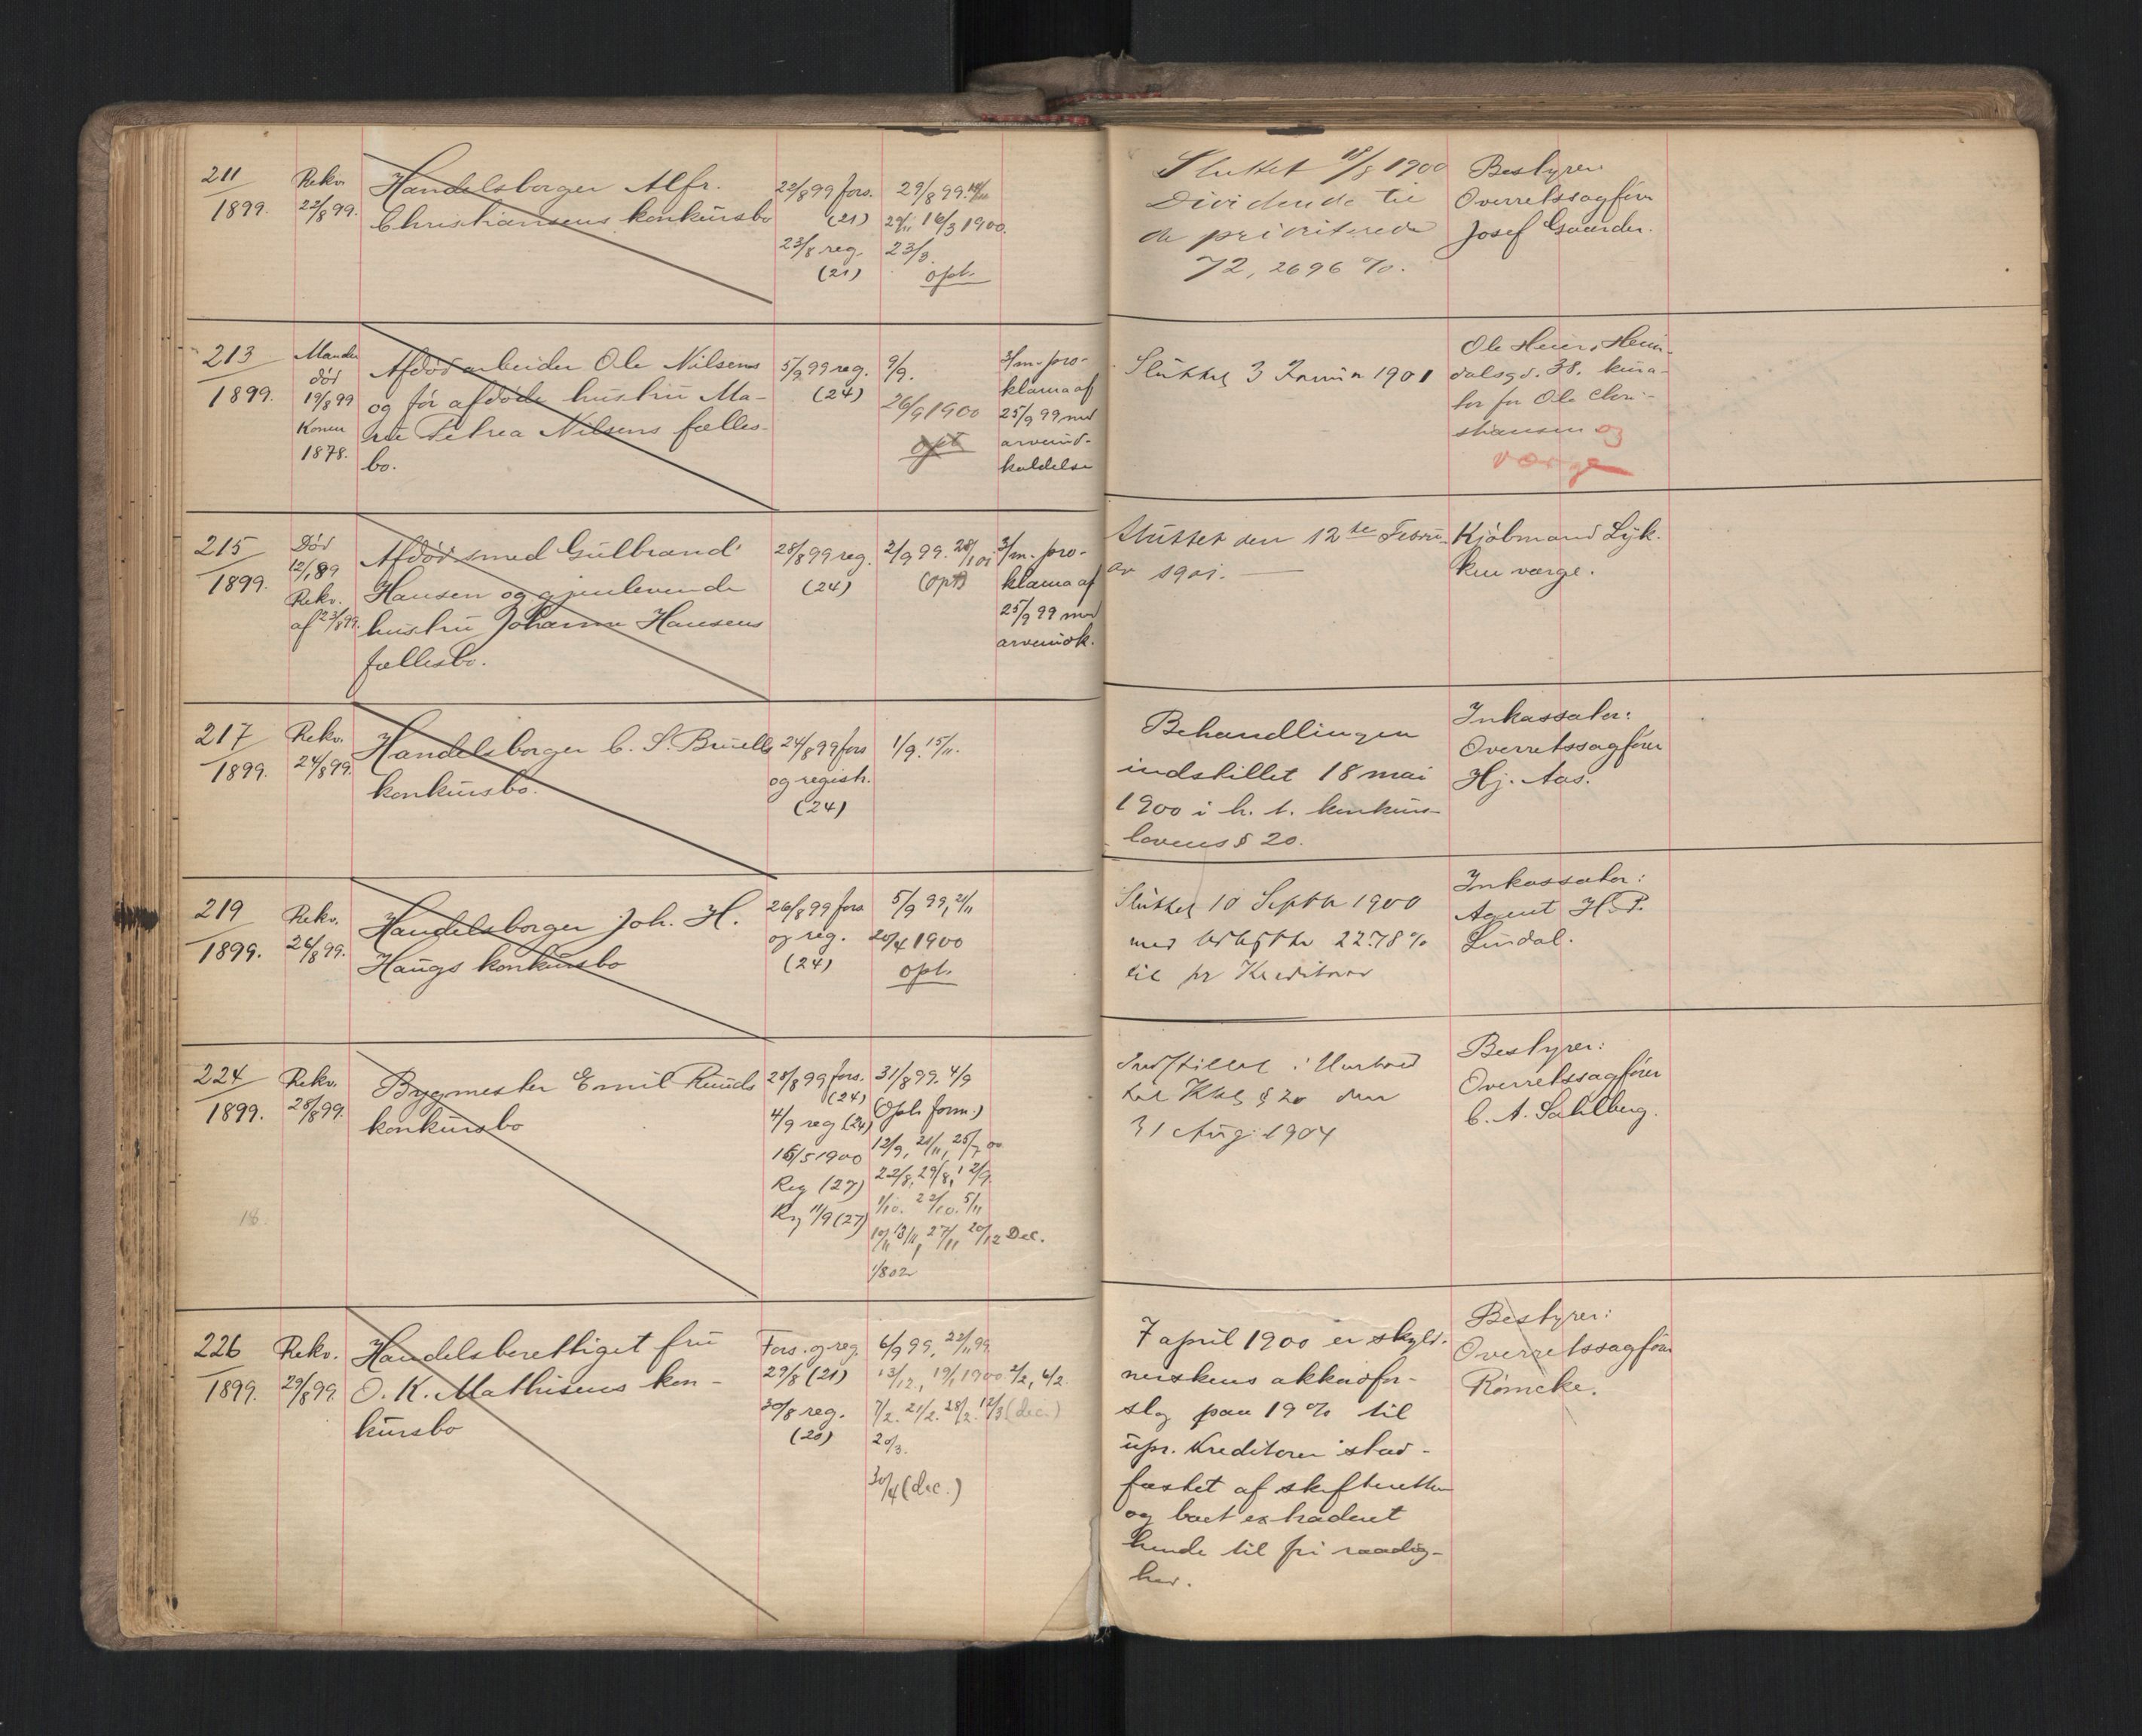 211
1899.
Rekv.
22/8 99.
Handelsborger Alfr.
Christiansens konkursbo
22/8 99 fors.
(21)
23/8 reg.
(21)
29/8 99.
29/11 16/3 1900.
23/3.
opt.
Sluttet 18/8 1900
Dividende til
de prioriterede
72,2696 %.
Bestyrer
Overretssagfører
Josef Gaarder.
213
1899.
Manden
død
19/8 99
Konen
1878.
Afdød arbeider Ole Nilsens
og før afdøde hustru Ma-
rie Petrea Nilsens fælles-
bo.
5/9 99 reg.
(24)
9/9.
26/9 1900
opt
3/m. pro-
klama af
25/9 99 med
arveind-
kaldelse
Sluttet 3 Januar 1901
Ole Heier, Heim-
dalsgd. 38. kura-
tor for Ole Chri-
stiansen og
værge
215
1899.
Død
12/1 89
Rekv.
af 23/8 99.
Afdød smed Gulbrand
Hansen og gjenlevende
hustru Johanne Hansens
fællesbo.
28/8 99 reg.
(24)
2/9 99. 28/1 01
(opt)
3/m. pro-
klama af
25/9 99 med
arveindk.
Sluttet den 12te Febru-
ar 1901.
Kjøbmand Lyk-
ken værge.
217
1899.
Rekv.
24/8 99.
Handelsborger C. S. Bruells
konkursbo.
24/8 99 fors
og registr.
(24)
1/9. 15/11.
Behandlingen
indstillet 18 mai
1900 i h. t. konkurs-
lovens § 20.
Inkassator:
Overretssagfører
Hj. Aas.
219
1899.
Rekv.
26/8 99.
Handelsborger Joh. H.
Haugs konkursbo
26/8 99 fors
og reg.
(24)
5/9 99, 2/11
20/4 1900
opt.
Sluttet 10 Septbr 1900
med Udbytte 22.78 %
til pr Kreditorer
Inkassator:
Agent H. P.
Lindal.
224
1899.
Rekv.
28/8 99.
Bygmester Emil Ruuds
konkursbo
28/8 99 fors.
(24)
4/9 reg (24)
15/5 1900
Reg (27)
Reg 11/9 (27)
31/8 99. 4/9
(Opt. form.)
12/9, 21/11, 25/7 00
22/8, 29/8, 12/9.
1/10. 22/10. 5/11
10/11 13/11, 27/11 20/12 Dec.
1/8 02
18.
Indstillet i Henhold
til Kkl § 20 den
31 Aug. 1904
Bestyrer:
Overretssagfører
C. A. Sahlberg.
226
1899.
Rekv.
29/8 99.
Handelsberettiget fru
O. K. Mathisens kon-
kursbo
Fors. og reg.
29/8 (21)
30/8 reg.
(20)
6/9 99, 22/11 99
13/12, 19/1 1900 2/2, 6/2
7/2. 21/2. 28/2. 12/3 (dec.)
20/3.
30/4 (dec.)
7 april 1900 er skyld-
nerskens akkordfor-
slag paa 19 % til
upr. Kreditorer stad-
fæstet af skifteretten
og boet extraderet
hende til fri raadig-
hed.
Bestyrer:
Overretssagfører
Römcke.